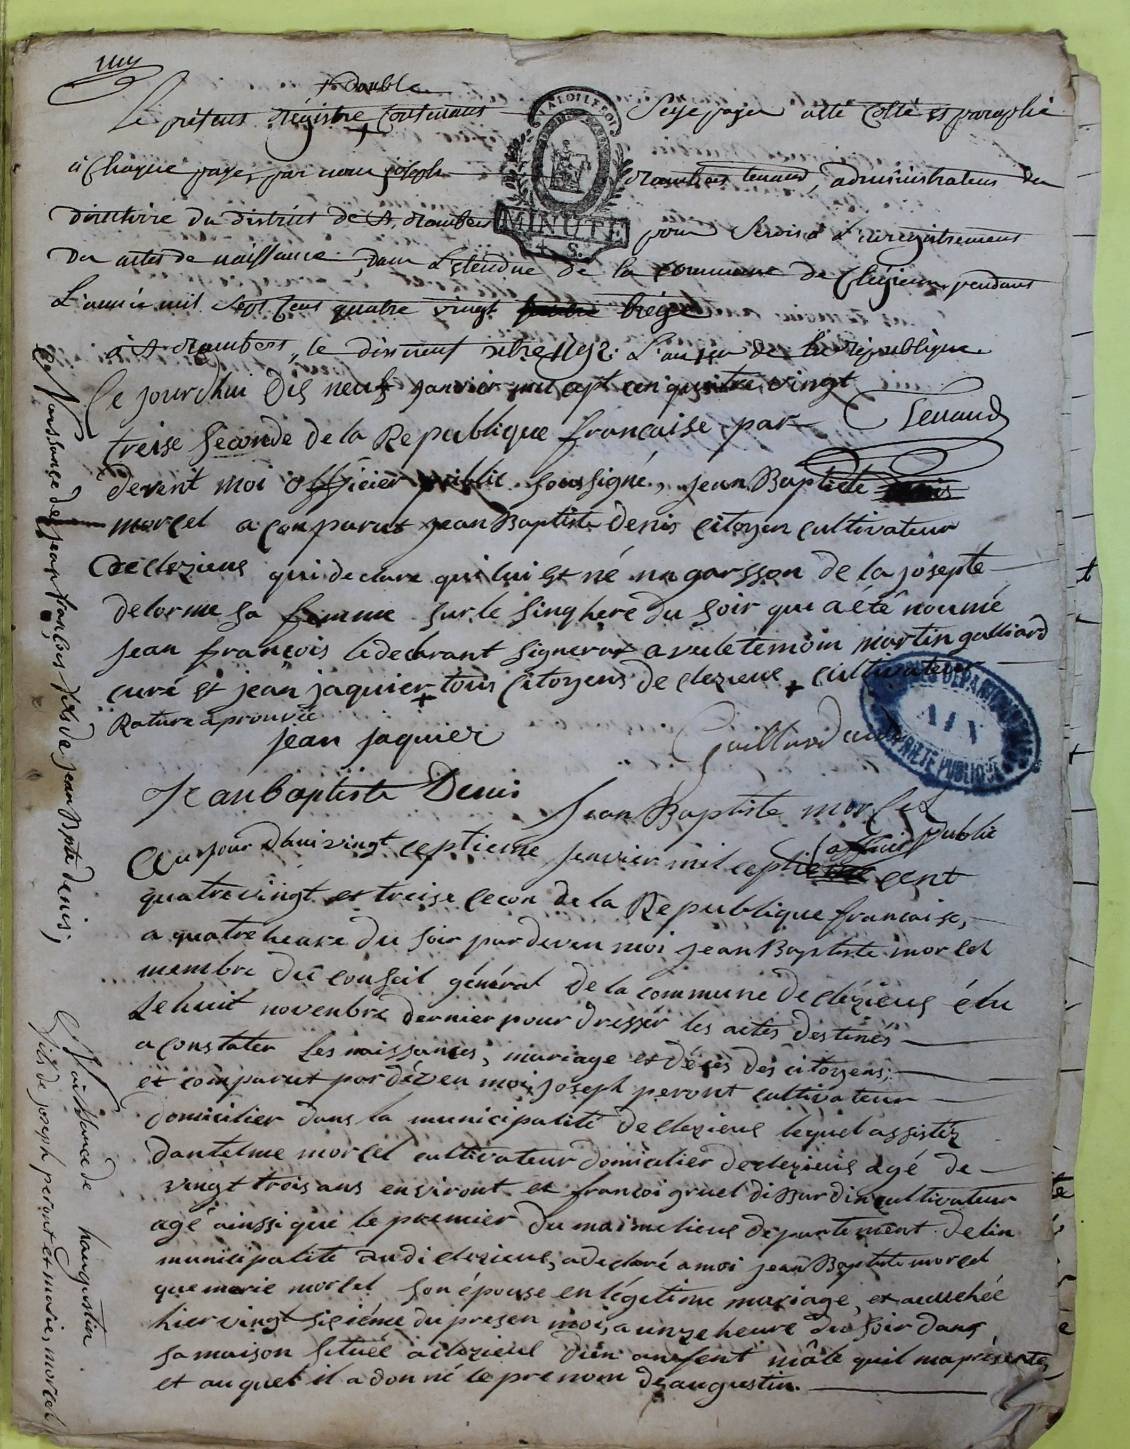 + double
Le présent régistre contenant Seize pages atté Cotté et paraphé
à Chaque page, par nous joseph rambert tenand, administrateur du
directoire du district de St. rambert pour Servir à L'enregistrement
des actes de naissance, dans L'étendue de la commune de Clézieu, pendant
L'année mil Sept Cent quatre vingt treize
à St rambert, le dix neuf xbre 1792. L'an 1er de la république
Tenand
Ce jourdhui dis neuf janvier mil sept cen quatre vingt
treise Seconde de la Republique francaise par
devent moi officier public soussigné, jean Baptiste
morcel a comparut jean Baptiste denis citoyen cultivateur
de clezieus qui declare qui lui est né un garsson de la josepte
delorme sa femme sur le singhere du soir qui a été noumé
jean francois le declarant signerat avec le temoin martin galliard
curé et jean jaquier + tous citoyens de clezieus + cultivateur
Rature aprouvée
jean jaquier
Gailliard curé
Jean baptiste Denis
Jean Baptiste morcel
officier public
Au jour dhui vingt ceptieme janvier mil cept cent
quatrevingt et treise cecon de la Republique francaise,
a quatre heure du soir par deven moi jean Baptiste morcel
membre du conseil général de la commune de clézieus élu
le huit novenbre dernier pour dresser les actes destinés
a constater les naissances, mariage et décès des citoyens;
et comparut par deven moi joseph peront cultivateur
domicilier dans la municipalité de clezieus lequel assistéz
dantelme morcel cultivateur domicilier de clezieus agé de
vingt trois ans environt et francoi gruel dissardin cultivateur
agé ainssi que le premier du maime lieus departement de lin
municipalité dudi clezieus, a declaré a moi jean Baptiste morcel
que marie morcel son épouse en légetime mariage, et acuchée
hier vingt sicième du presen mois, a unze heure du soir dans
sa maison située a clezieus d'un anfent mâle quil ma presenté,
et auquel il a donné le prenom de augustin.
Naissance de jean francois fils de jean Bptte denis;
Naissance de haugustin
fils de joseph peront et marie morcel
LA LOI LE ROI
MINUTE
AIN
PROPRIÉTÉ PUBLIQUE